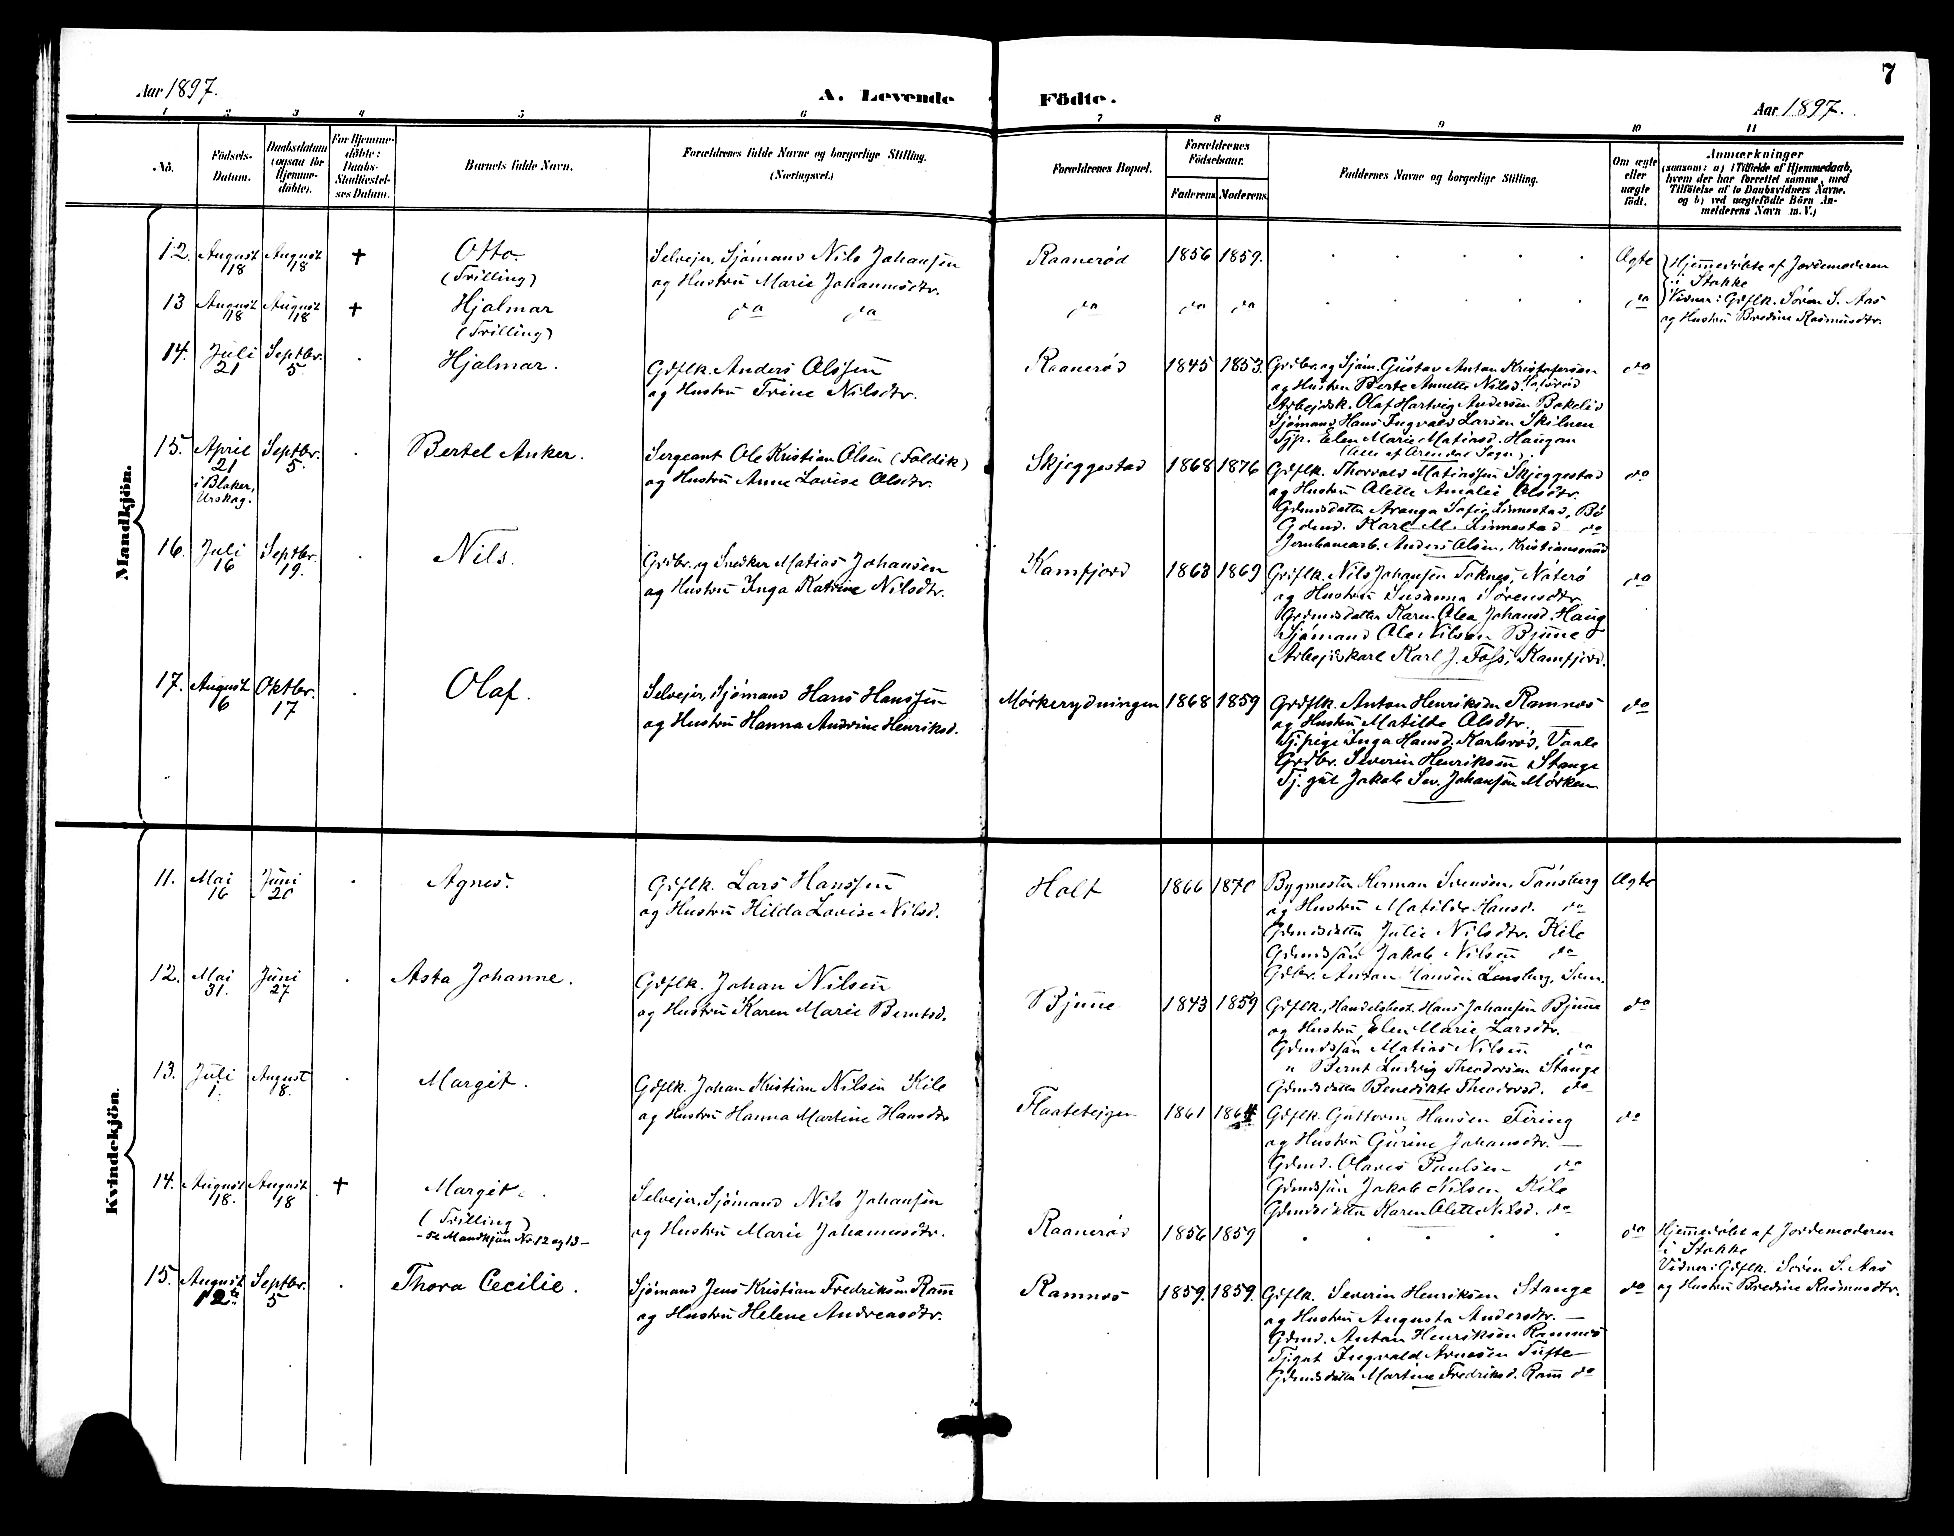 7
Aar 1897.
A. Levende Födte.
Aar 1897.
1 2 3 4 5 6 7 8 9 10 11
No.
Födsels-
Datum.
Daabsdatum
(ogsaa for
Hjemme-
döbte).
For Hjemme-
döbte:
Daabs-
Stadfæstel-
ses Datum.
Barnets fulde Navn.
Forældrenes fulde Navne og borgerlige Stilling.
(Næringsvei.)
Forældrenes Bopæl.
Forældrenes
Födselsaar.
Faderens Moderens
Faddernes Navne og borgerlige Stilling.
Om ægte
eller
uægte
født.
Anmærkninger
(saasom: a) i Tilfælde af Hjemmedaab,
hvem der har forrettet samme, med
Tilföielse af to Daabsvidners Navne,
og b) ved uægtefödte Börn An-
melderens Navn m. V.)
Mandkjön.
12. August 18 August 18 + Otto
(Trilling)
Selvejer, Sjömand Nils Johansen
og Hustru Marie Johannesdtr.
Raanerød 1856 1859. Ægte
Hjemmedöbte af Jordemoderen
i Stokke
Vidner: Gdflk. Sören S. Aas
og Hustru Bredine Rasmusdtr.
13 August 18 August 18 + Hjalmar
(Trilling)
do do do do do do
14. Juli 21 Septbr. 5. Hjalmar.
Gdflk. Anders Olssen
og Hustru Trine Nilsdtr.
Raanerød 1845 1853.
Grdbr. og Sjöm. Gustav Anton Kristofersen
og Hustru Berte Annette Nilsd.
Arbejdsk. Olaf Hartvig Andersen Bakelid
Sjömand Hans Ingvald Larsen Skilsnen
Tjp. Elen Marie Matiasd. Haugan
(Alle af Arendal Sogn).
do
15. April 21 i Blaker, Urskog. Septbr. 5. Bertel Anker.
Sergeant Ole Kristian Olsen (Foldik)
og Hustru Anne Lovise Olsdtr.
Skjeggestad 1868 1876
Gdflk. Thorvald Matiassen Skjeggestad
og Hustru Olette Amalie Olsdtr.
Gdmdsdatter Aranga Sofie Linnestad, Bö
Gdmd. Karl M. Linnestad do
Jernbanearb. Anders Olsen, Kristianssund
do
16. Juli 16 Septbr. 19. Nils.
Grdbr. og Snedker Matias Johansen
og Hustru Inga Katrine Nilsdtr.
Kamfjord 1863 1869
Grdflk. Nils Johansen Toknes, Nøterø
og Hustru Susanna Sørensdtr
Grdmdsdatter Karen Olea Johansd. Haug
Sjömand Ole Nilsen Bjune
Arbejdskarl Karl J. Foss, Kamfjord.
do
17. August 6 Oktbr. 17 Olaf.
Selvejer, Sjömand Hans Hanssen
og Hustru Hanna Andrine Henriksd.
Mörkerydningen 1868 1859
Grdflk. Anton Henriksen Ramnes
og Hustru Matilde Olsdtr.
Tj. pige Inga Hansd. Karlsrød, Vaale
Grdbr. Severin Henriksen Stange
Tj. gut Jakob Sev. Johansen Mörken
do
Kvindekjön.
11. Mai 16 Juni 20 Agnes.
Gdflk. Lars Hanssen
og Hustru Hilda Lovise Nilsd.
Holt 1866 1870
Bygmester Herman Svensen, Tönsberg
og Hustru Matilde Hansd. do
Gdmdsdatter Julie Nilsdtr. Kile
Gdmdssön Jakob Nilsen do
Gdbr. Anton Hansen Lensberg, Sem.
Ægte
12. Mai 31. Juni 27 Asta Johanne.
Gdflk. Johan Nilsen
og Hustru Karen Marie Berntsd.
Bjune 1843 1859
Gdflk., Handelsbest. Hans Johansen Bjune
og Hustru Elen Marie Larsdtr.
Gdmdssön Matias Nilsen do
" Bernt Ludvig Theodorsen Stange
Gdmdsdatter Benedikte Theodorsd. do
do
13. Juli 1. August 8. Margit.
Gdflk. Johan Kristian Nilsen Kile
og Hustru Hanna Martine Hansdtr
Flaatetejgen 1861 1864
Gdflk. Guttorm Hansen Firing
og Hustru Gurine Johansdtr. —
Gdmd. Olaves Paulsen do
Gdmdssön Jakob Nilsen Kile
Gdmdsdatter Karen Olette Nilsd. do
do
14. August 18. August 18 + Margit.
(Trilling)
- se Mandkjön No 12 og 13 -
Selvejer, Sjömand Nils Johansen
og Hustru Marie Johannesdtr.
Raanerød 1856 1859 do
Hjemmedöbt af Jordemoderen
i Stokke
Vidner: Gdflk. Sören S. Aas
og Hustru Bredine Rasmusdtr.
15. August 12te Septbr. 5 Thora Cecilie.
Sjömand Jens Kristian Fredriksen Ram
og Hustru Helene Andreasdtr.
Ramnes 1859. 1859.
Gdflk. Severin Henriksen Stange
og Hustru Augusta Andersdtr. —
Gdmd. Anton Henriksen Ramnes
Tj. gut Ingvald Arnesen Tufte
Gdmdsdatter Martine Fredriksd. Ram do
do